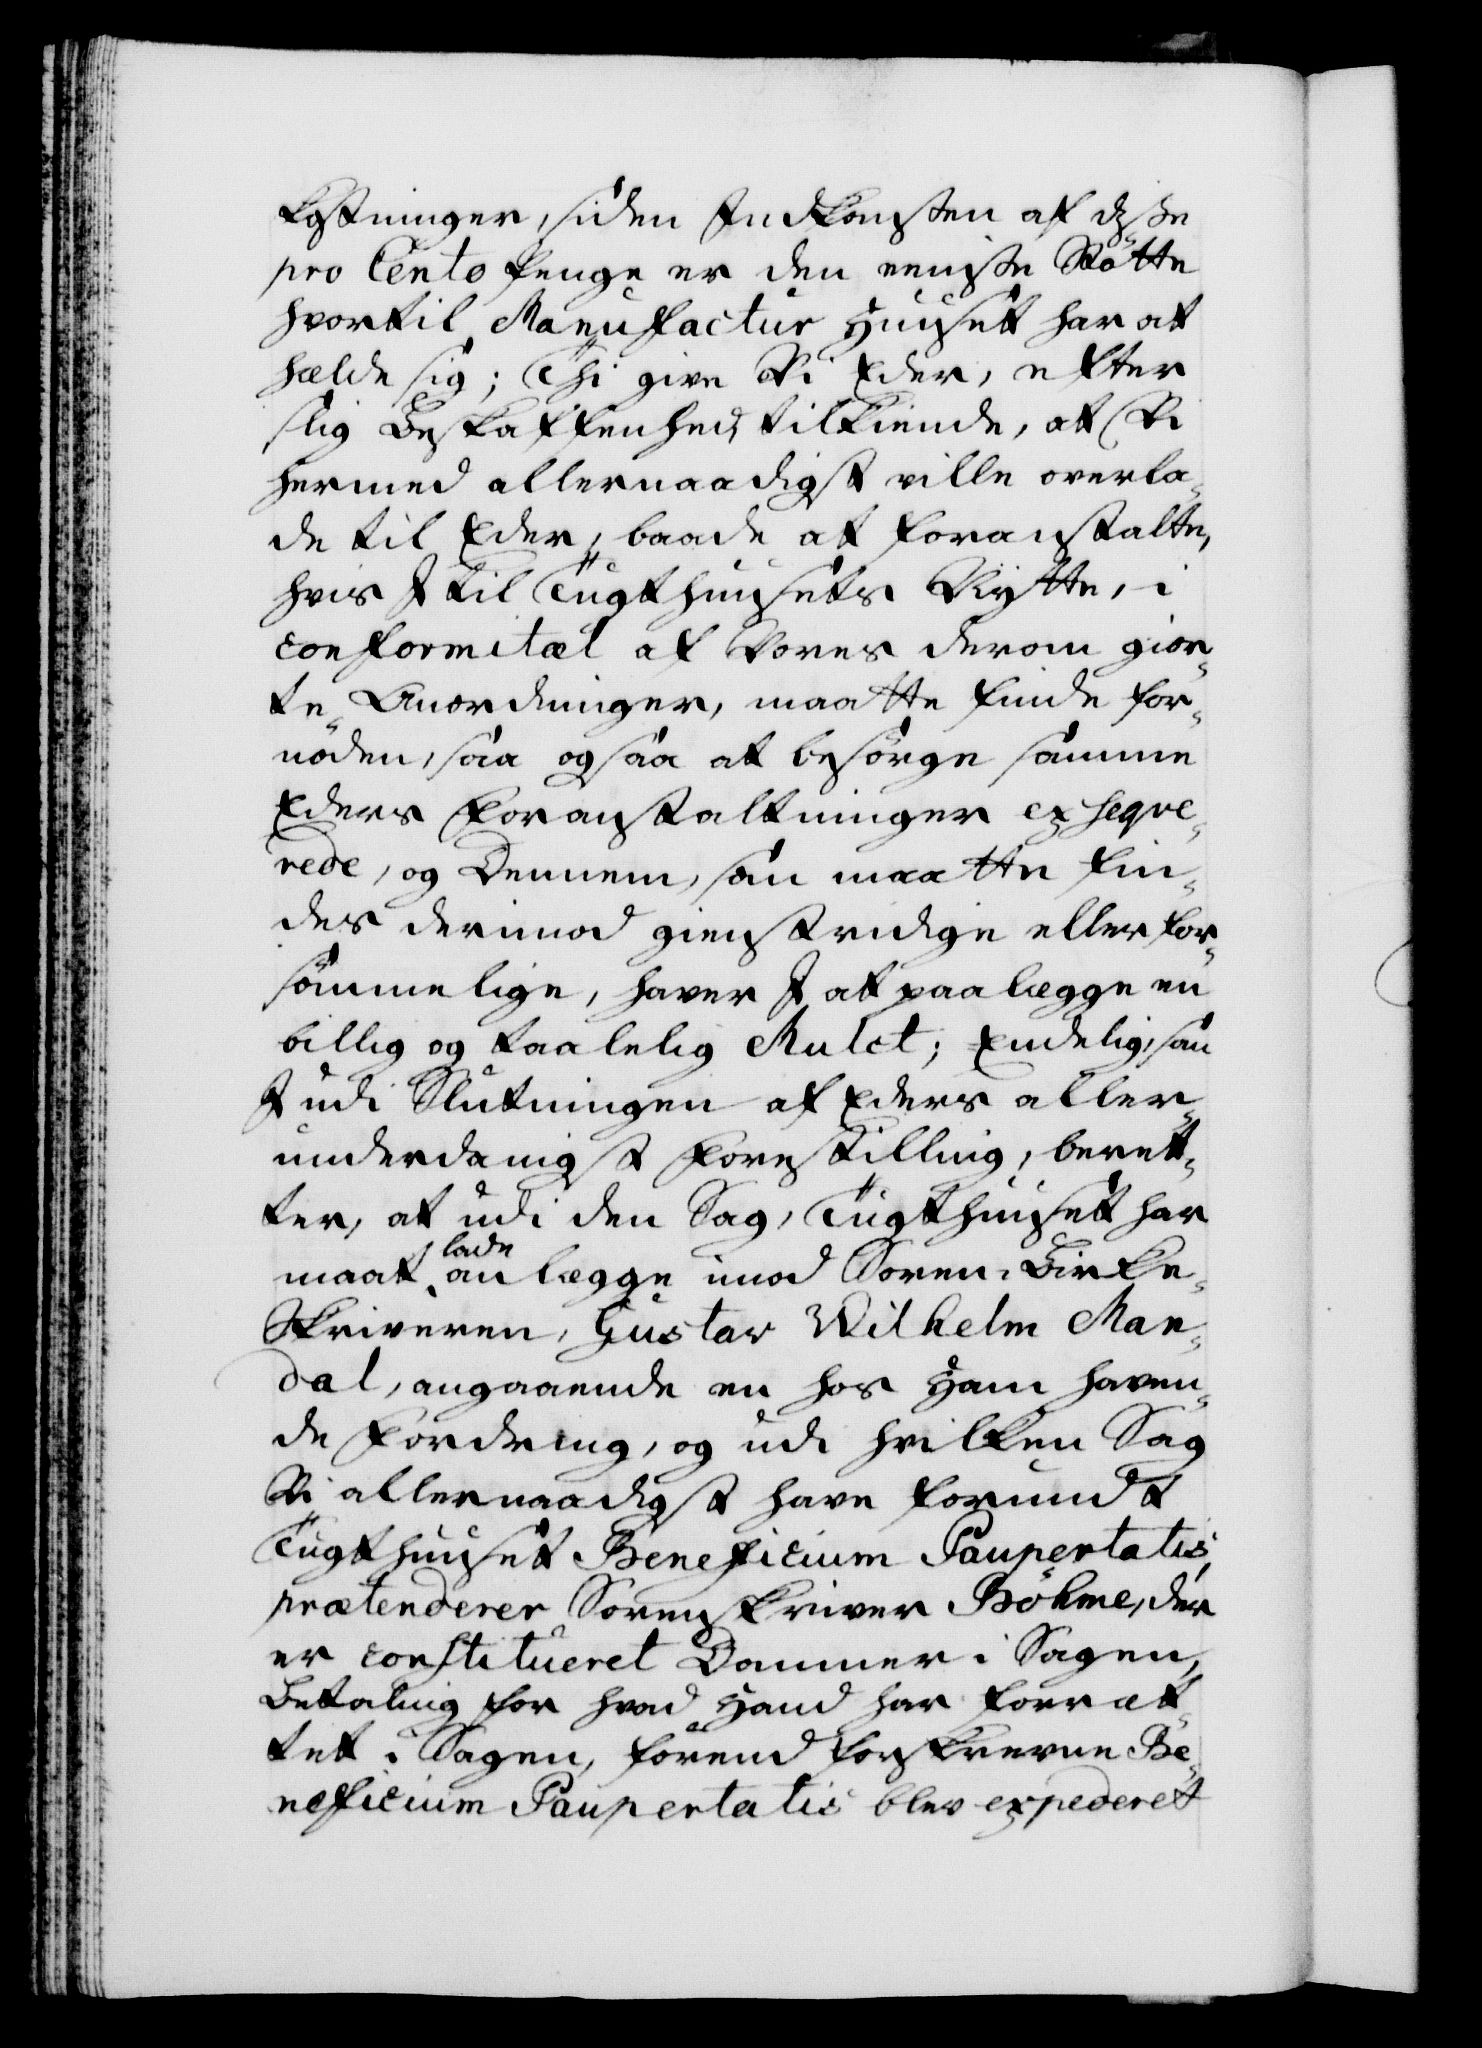 kostninger, siden Indkomsten af disse
pro Cento Penge er den eeniste Støtte
hvortil Manufactur Huuset har at
holde sig; Thi give Vi Eder, efter
slig Beskaffenhed, tilkiende, at Vi
hermed allernaadigst ville overla-
de til Eder, baade at foranstalte,
hvis I til Tugthuusets Nytte, i
conformitæt af Vores derom gior-
te Anordninger, maatte finde for-
nøden, saa og saa at besørge samme
Eders Foranstaltninger exseqve-
rede, og Dennem, som maatte fin-
des derimod gienstridige eller for-
sømmelige, haver I at paalægge en
billig og taalelig Mulct; Endelig, som
I udi Slutningen af Eders aller-
underdanigst Forestilling, beret-
ter, at udi den Sag, Tugthuuset har
maat lade anlægge imod Soren- Birke-
Skriveren, Gustav Wilhelm Man-
dal, angaaende en hos Ham haven-
de Fordring, og udi hvilken Sag
Vi allernaadigst have forundt
Tugthuuset Beneficium Paupertatis,
prætenderer Sorenskriver Böhme, der
er constitueret Dommer i Sagen,
Betaling for hvad Hand har forret-
tet i Sagen, förend forskrevne Be-
neficium Paupertatis blev expederet